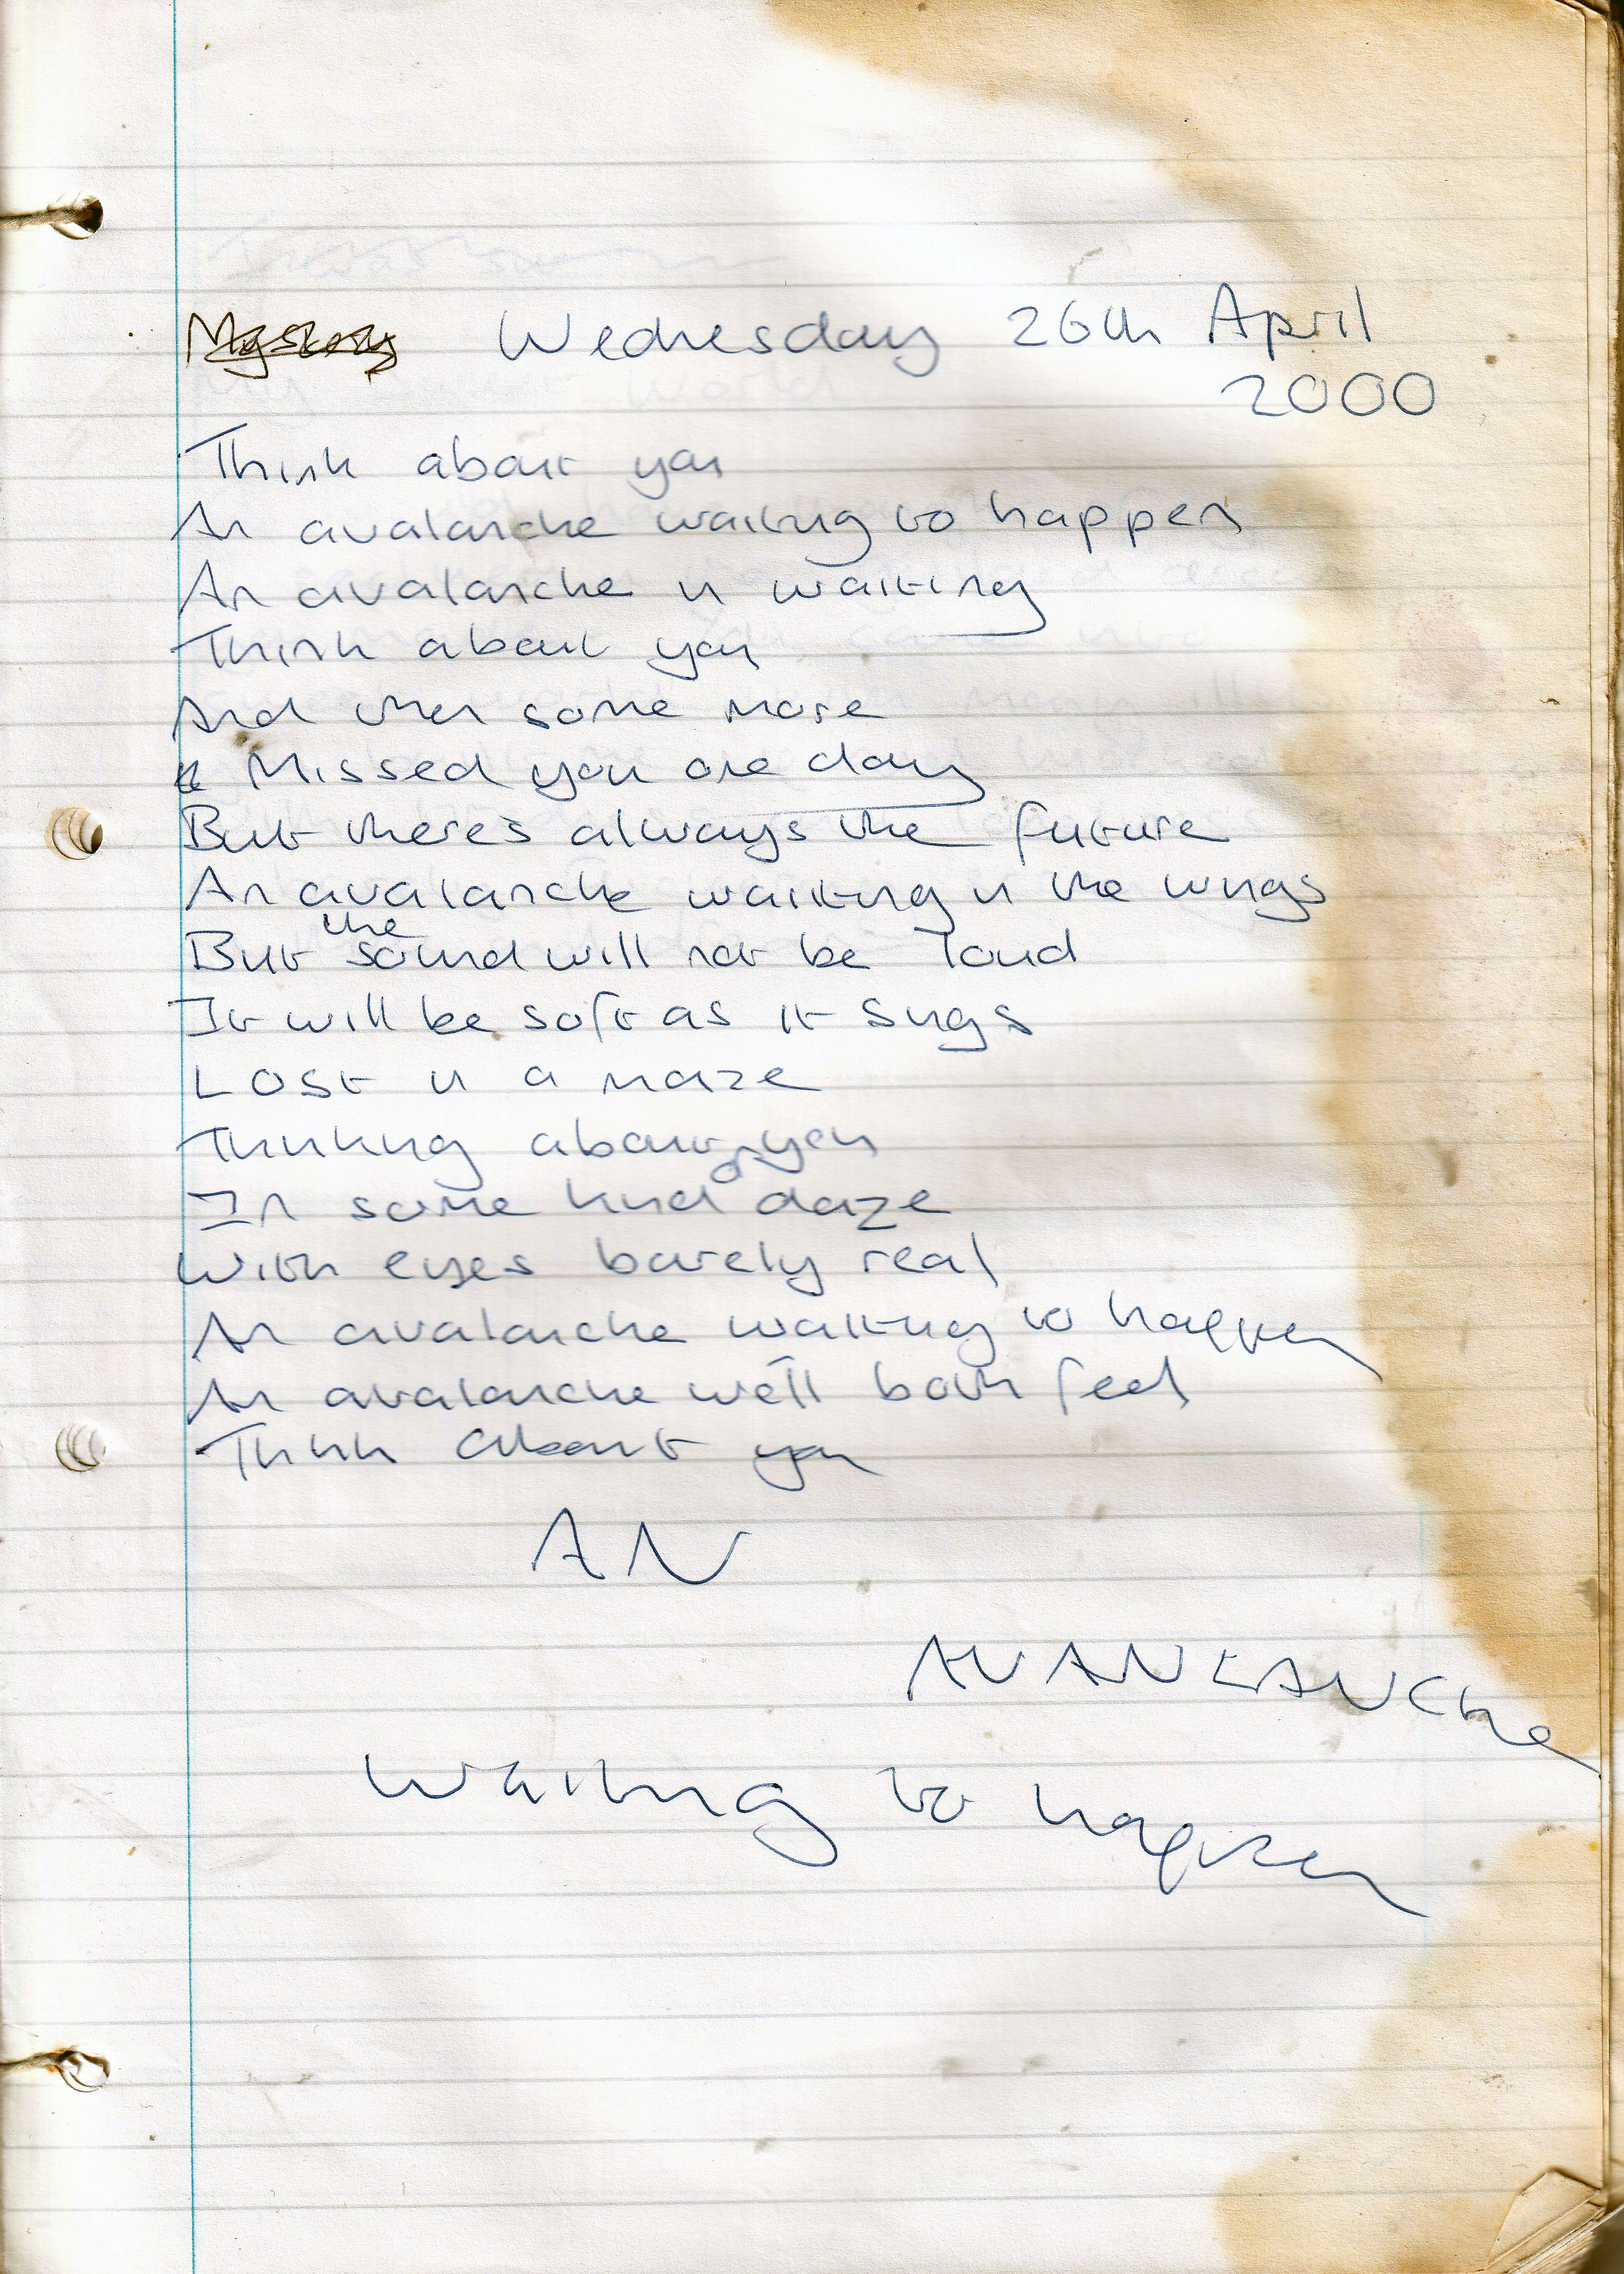 Mystery Wednesday 26th April
2000
Think about you
An avalanche waiting to happen
An avalanche in waiting
Think about you
And then some more
Missed you one day
But there's always the future
An avalanche waiting in the wings
But the sound will not be loud
It will be soft as it sings
Lost in a maze
Thinking about you
In some kind of daze
With eyes barely real
An avalanche waiting to happen
An avalanche we'll both feel
Think about you
AN
AVANLANCHe
Waiting to happen